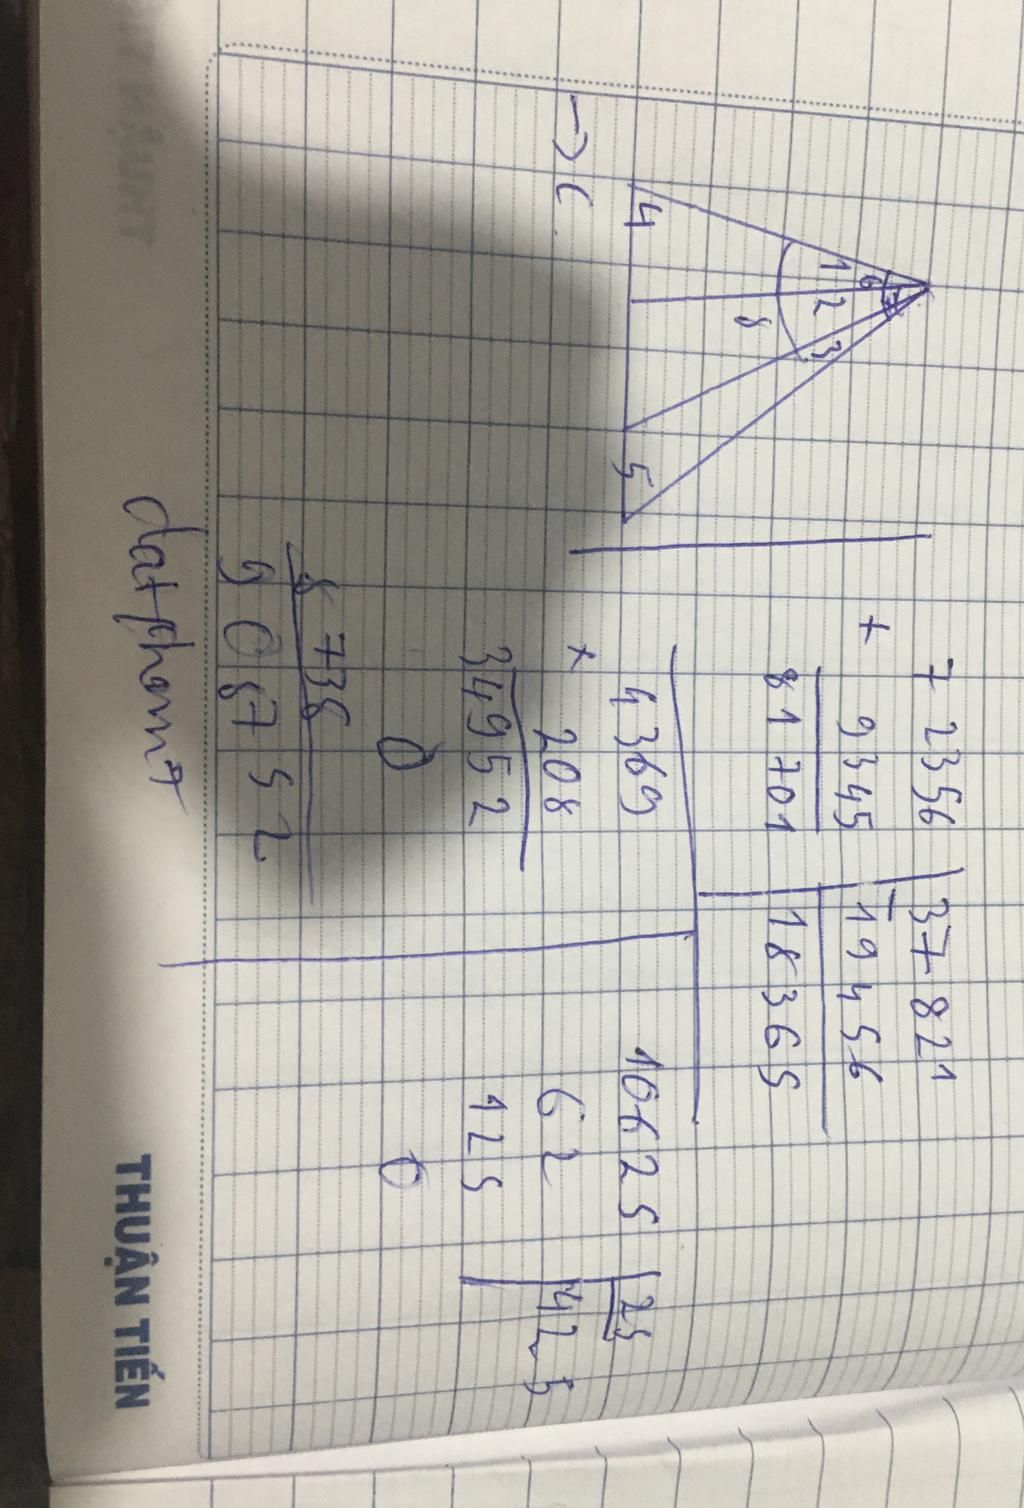 6 7
1 2 3
8
4 5
→ C
72356
+
9345
81701
37821
-
19456
18365
4369
×
208
34952
0
8738
908752
10625 25
62 425
125
0
datphomt
THUẬN TIẾN